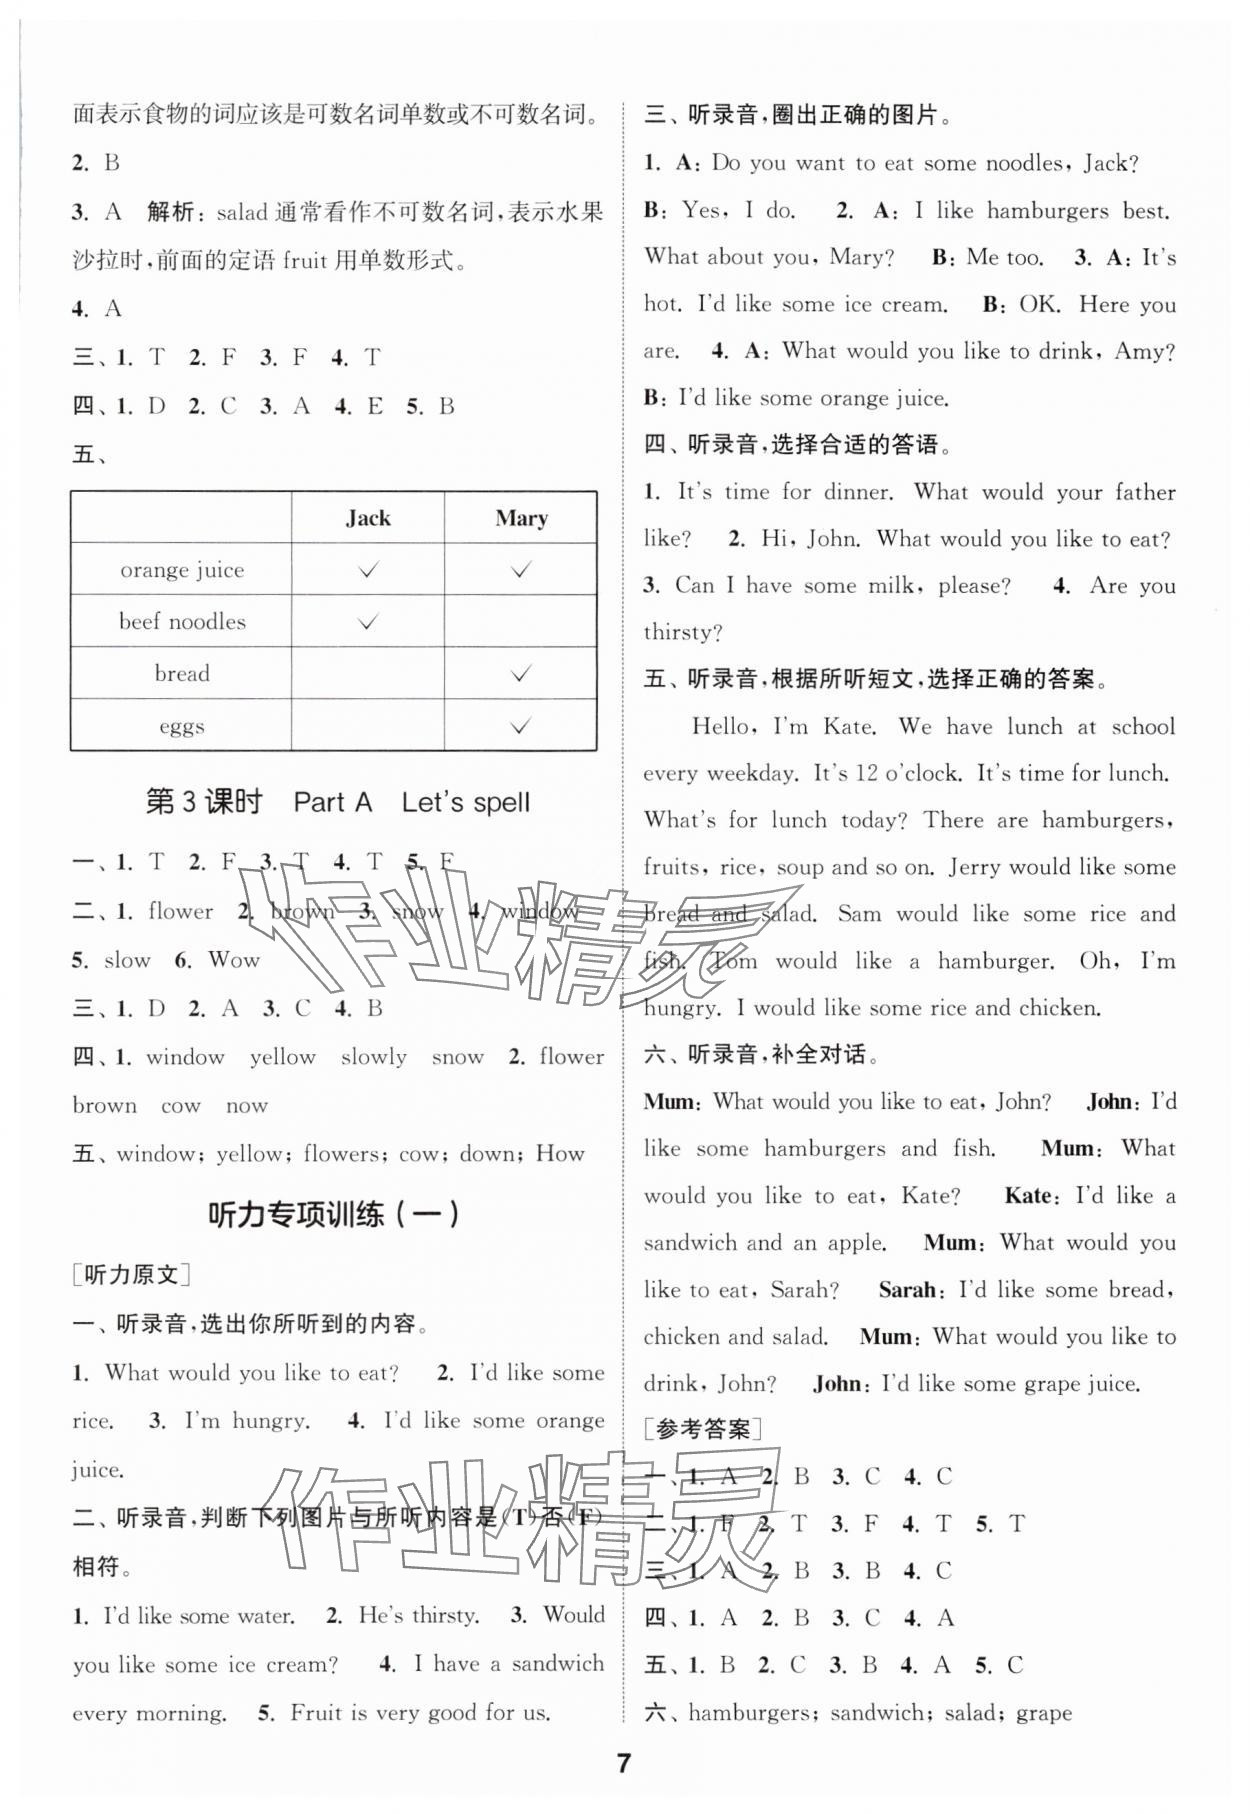 面表示食物的词应该是可数名词单数或不可数名词。
2. B
3. A 解析: salad 通常看作不可数名词,表示水果
沙拉时,前面的定语 fruit 用单数形式。
4. A
三、1. T 2. F 3. F 4. T
四、1. D 2. C 3. A 4. E 5. B
五、
Jack Mary
orange juice ✓ ✓
beef noodles ✓
bread ✓
eggs ✓
第 3 课时 Part A Let's spell
一、1. T 2. F 3. T 4. T 5. F
二、1. flower 2. brown 3. snow 4. window
5. slow 6. Wow
三、1. D 2. A 3. C 4. B
四、1. window yellow slowly snow 2. flower
brown cow now
五、window; yellow; flowers; cow; down; How
听力专项训练(一)
[听力原文]
一、听录音,选出你所听到的内容。
1. What would you like to eat? 2. I'd like some
rice. 3. I'm hungry. 4. I'd like some orange
juice.
二、听录音,判断下列图片与所听内容是(T)否(F)
相符。
1. I'd like some water. 2. He's thirsty. 3. Would
you like some ice cream? 4. I have a sandwich
every morning. 5. Fruit is very good for us.
三、听录音,圈出正确的图片。
1. A: Do you want to eat some noodles, Jack?
B: Yes, I do. 2. A: I like hamburgers best.
What about you, Mary? B: Me too. 3. A: It's
hot. I'd like some ice cream. B: OK. Here you
are. 4. A: What would you like to drink, Amy?
B: I'd like some orange juice.
四、听录音,选择合适的答语。
1. It's time for dinner. What would your father
like? 2. Hi, John. What would you like to eat?
3. Can I have some milk, please? 4. Are you
thirsty?
五、听录音,根据所听短文,选择正确的答案。
Hello, I'm Kate. We have lunch at school
every weekday. It's 12 o'clock. It's time for lunch.
What's for lunch today? There are hamburgers,
fruits, rice, soup and so on. Jerry would like some
bread and salad. Sam would like some rice and
fish. Tom would like a hamburger. Oh, I'm
hungry. I would like some rice and chicken.
六、听录音,补全对话。
Mum: What would you like to eat, John? John: I'd
like some hamburgers and fish. Mum: What
would you like to eat, Kate? Kate: I'd like a
sandwich and an apple. Mum: What would you
like to eat, Sarah? Sarah: I'd like some bread,
chicken and salad. Mum: What would you like to
drink, John? John: I'd like some grape juice.
[参考答案]
一、1. A 2. B 3. C 4. C
二、1. F 2. T 3. F 4. T 5. T
三、1. A 2. B 3. B 4. C
四、1. A 2. B 3. C 4. A
五、1. B 2. C 3. B 4. A 5. C
六、hamburgers; sandwich; salad; grape
7
作业精灵
作业精灵